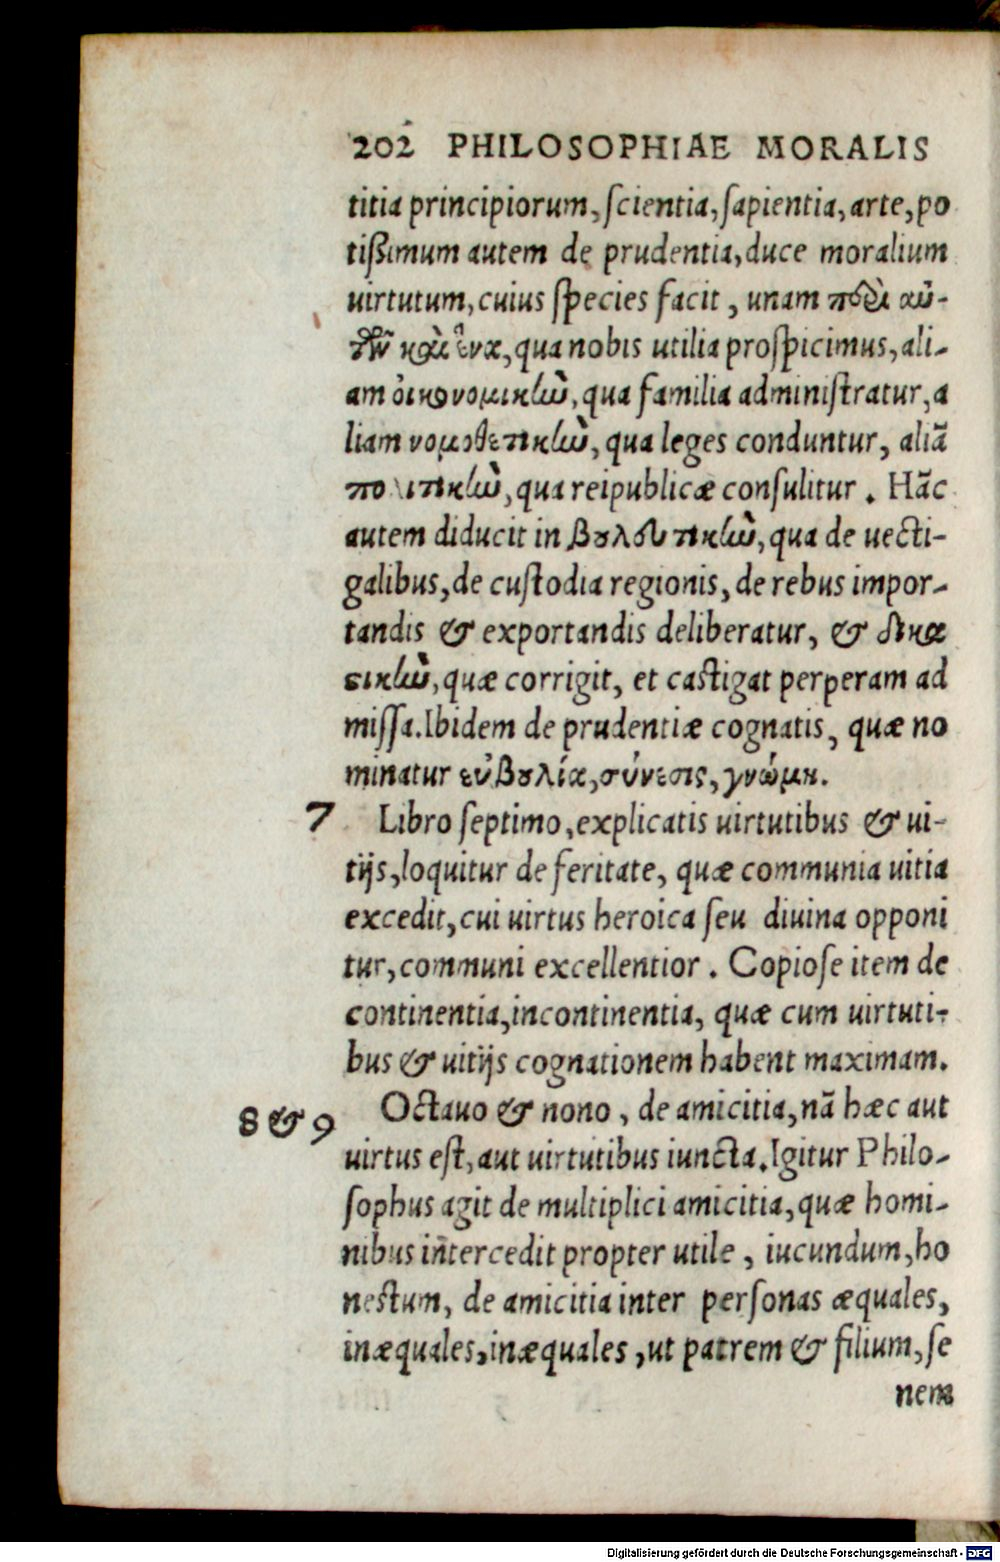 202 PHILOSOPHIAE MORALIS
titia principiorum, ſcientia, ſapientia, arte, po
tiſsimum autem de prudentia, duce moralium
uirtutum, cuius ſpecies facit, unam περὶ αὐ-
τὸν καὶ ἕνα, qua nobis utilia proſpicimus, ali-
am ὀικονομικἰω̃, qua familia adminiſtratur, a
liam νομοθετικἰω̃, qua leges conduntur, aliã
πολιτικἰω̃, qua reipublicæ conſulitur. Hãc
autem diducit in βουλευτικἰω̃, qua de uecti-
galibus, de cuſtodia regionis, de rebus impor-
tandis & exportandis deliberatur, & δικα
ςικἰω̃, quæ corrigit, et caſtigat perperam ad
miſſa. Ibidem de prudentiæ cognatis, quæ no
minatur εὐβουλία, σύνεσις, γνώμη.
7 Libro ſeptimo, explicatis uirtutibus & ui-
tijs, loquitur de feritate, quæ communia uitia
excedit, cui uirtus heroica ſeu diuina opponi
tur, communi excellentior. Copioſe item de
continentia, incontinentia, quæ cum uirtuti-
bus & uitijs cognationem habent maximam.
8 & 9 Octauo & nono, de amicitia, nã hæc aut
uirtus eſt, aut uirtutibus iuncta. Igitur Philo-
ſophus agit de multiplici amicitia, quæ homi-
nibus intercedit propter utile, iucundum, ho
neſtum, de amicitia inter perſonas æquales,
inæquales, inæquales, ut patrem & filium, ſe
nem
Digitalisierung gefördert durch die Deutsche Forschungsgemeinschaft - DFG